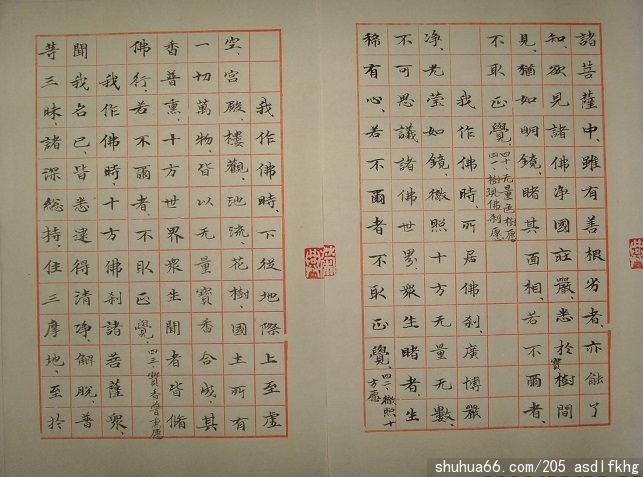 諸菩薩中、雖有善根劣者、亦能了
知、欲見諸佛淨國莊嚴、悉於寶樹間
見、猶如明鏡、睹其面相、若不爾者、
不取正覺、四十、无量色樹愿 四一、樹現佛刹愿
我作佛時、所居佛刹、廣博嚴
淨、光莹如鏡、徹照十方无量无數、
不可思議諸佛世界、衆生睹者、生
稀有心、若不爾者不取正覺、四二、徹照十方愿
我作佛時、下從地際上至虛
空、宮殿、樓觀、池流、花樹、國土所有
一切萬物、皆以无量寶香合成、其
香普熏、十方世界衆生聞者皆脩
佛行、若不爾者、不取正覺、四三、寶香普熏愿
我作佛時、十方佛刹諸菩薩衆、
聞我名已、皆悉逮得清淨、解脫、普
等三昧、諸深總持、住三摩地、至於
shuhua66.com/205 asdlfkhg